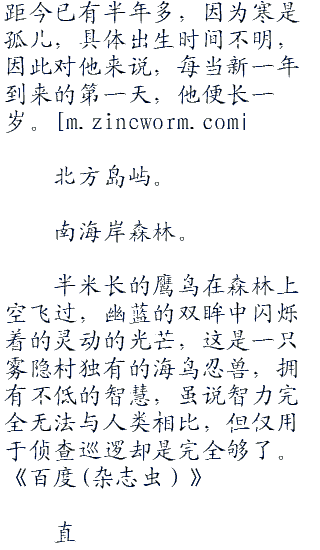 距今已有半年多，因为寒是
孤儿，具体出生时间不明，
因此对他来说，每当新一年
到来的第一天，他便长一
岁。[m.zincworm.com]
北方岛屿。
南海岸森林。
半米长的鹰鸟在森林上
空飞过，幽蓝的双眸中闪烁
着的灵动的光芒，这是一只
雾隐村独有的海鸟忍兽，拥
有不低的智慧，虽说智力完
全无法与人类相比，但仅用
于侦查巡逻却是完全够了。
《百度(杂志虫)》
直